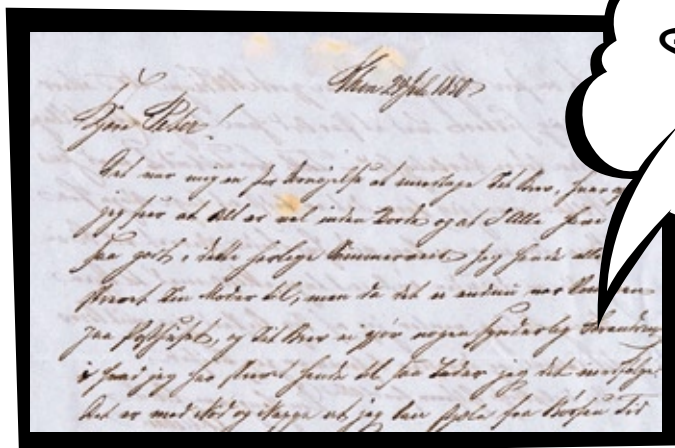 Kjære Peter!
Det var mig en stor Fornøjelse at modtage Dit Brev, hvoraf
jeg seer at Alt er vel inden Borde og at I Alle have
saa godt i dette herlige Sommerveir. Jeg havde alle
skrevet Din Moder til, men da det ei endnu var kommen
paa Posthuset, og Dit Brev ei gjør nogen synderlig Forandring
i hvad jeg har skrevet hende til, saa lader jeg det medfølge.
Det er med Nød og neppe at jeg kan fra Børsen Tid